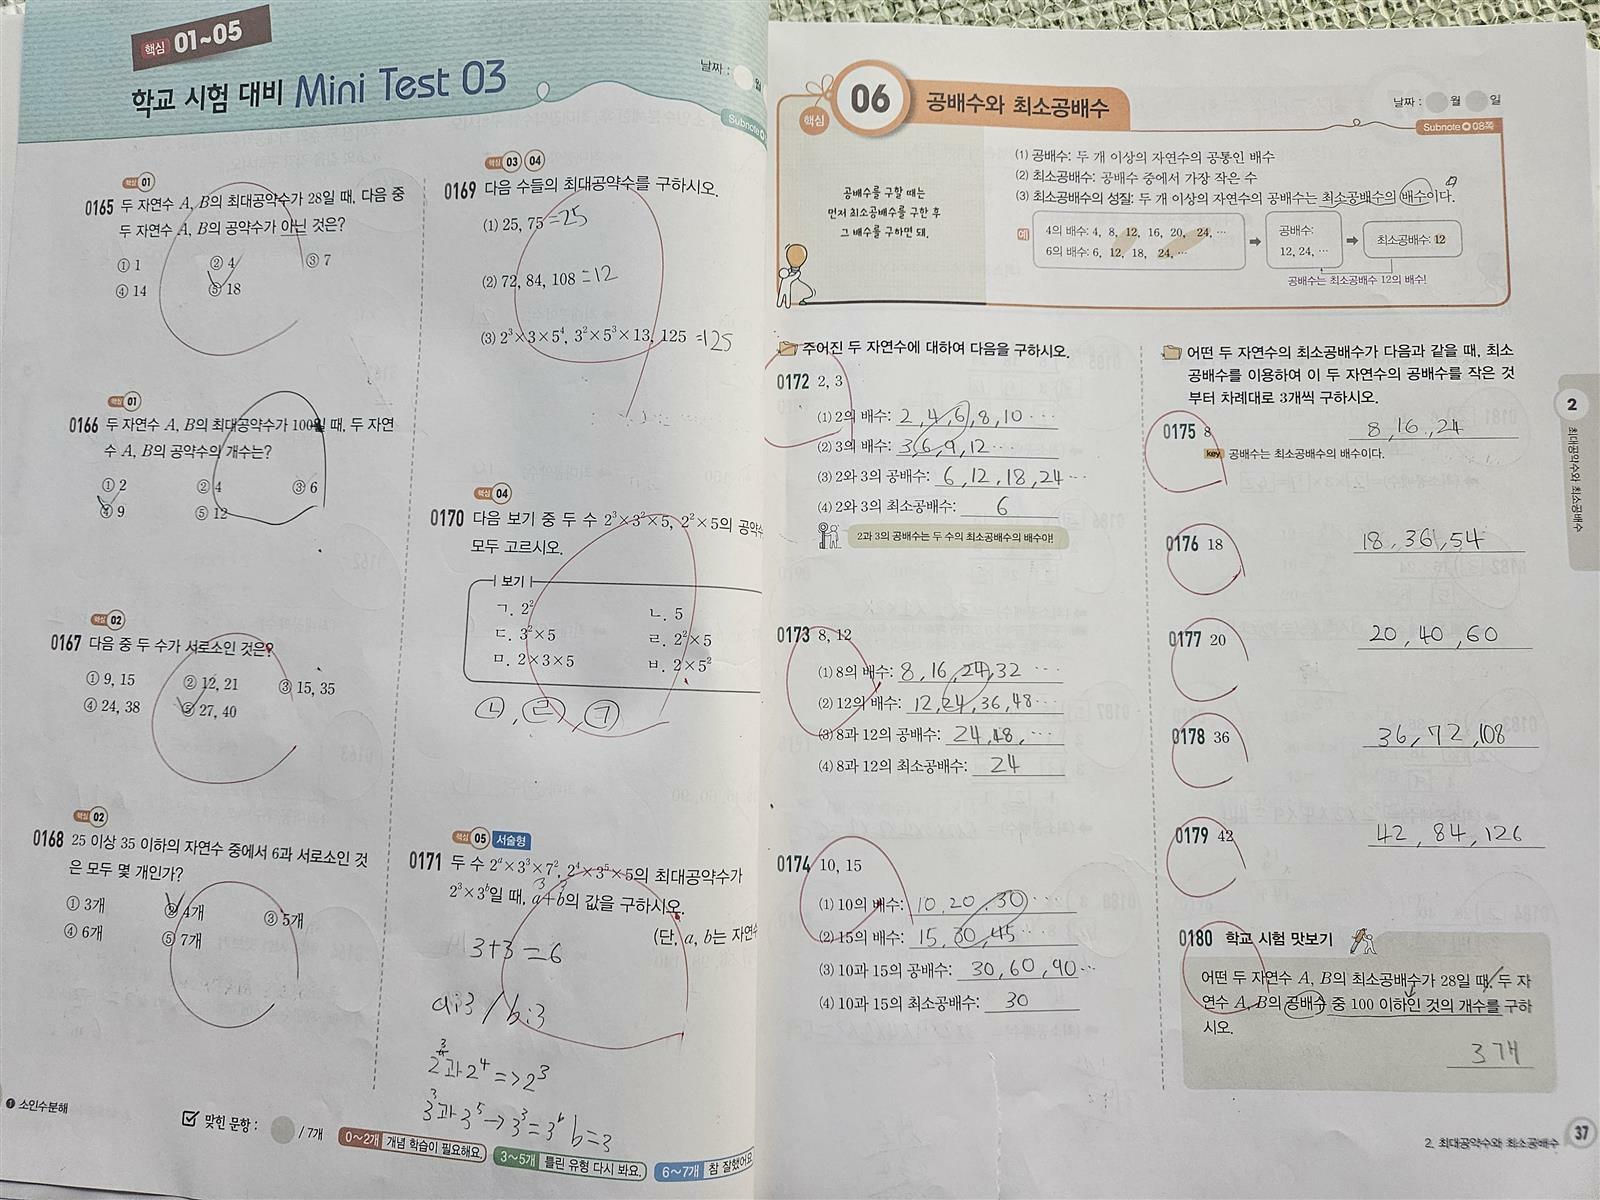 핵심 01~05
학교 시험 대비 Mini Test 03
날짜 : 월
Subnote
핵심 01
0165 두 자연수 A, B의 최대공약수가 28일 때, 다음 중
두 자연수 A, B의 공약수가 아닌 것은?
① 1 ② 4 ③ 7
④ 14 ⑤ 18
핵심 01
0166 두 자연수 A, B의 최대공약수가 100일 때, 두 자연
수 A, B의 공약수의 개수는?
① 2 ② 4 ③ 6
④ 9 ⑤ 12
핵심 02
0167 다음 중 두 수가 서로소인 것은?
① 9, 15 ② 12, 21 ③ 15, 35
④ 24, 38 ⑤ 27, 40
핵심 02
0168 25 이상 35 이하의 자연수 중에서 6과 서로소인 것
은 모두 몇 개인가?
① 3개 ② 4개 ③ 5개
④ 6개 ⑤ 7개
핵심 03 04
0169 다음 수들의 최대공약수를 구하시오.
(1) 25, 75 =25
(2) 72, 84, 108 =12
(3) 2³×3×5⁴, 3²×5³×13, 125 =125
핵심 04
0170 다음 보기 중 두 수 2³×3²×5, 2²×5의 공약수
모두 고르시오.
보기
ㄱ. 2² ㄴ. 5
ㄷ. 3²×5 ㄹ. 2²×5
ㅁ. 2×3×5 ㅂ. 2×5²
ㄴ, ㄹ, ㄱ
핵심 05 서술형
0171 두 수 2ᵃ×3³×7², 2⁴×3⁵×5의 최대공약수가
2³×3ᵇ일 때, a+b의 값을 구하시오.
3 3
(단, a, b는 자연수
3+3=6
a:3 / b:3
2³과 2⁴ => 2³
3³과 3⁵ → 3³=3ᵇ b=3
① 소인수분해
맞힌 문항 : / 7개
0~2개 개념 학습이 필요해요.
3~5개 틀린 유형 다시 봐요.
6~7개 참 잘했어요
핵심 06 공배수와 최소공배수
날짜 : 월 일
Subnote 08쪽
공배수를 구할 때는
먼저 최소공배수를 구한 후
그 배수를 구하면 돼.
(1) 공배수: 두 개 이상의 자연수의 공통인 배수
(2) 최소공배수: 공배수 중에서 가장 작은 수
(3) 최소공배수의 성질: 두 개 이상의 자연수의 공배수는 최소공배수의 배수이다.
예 4의 배수: 4, 8, 12, 16, 20, 24, ⋯
6의 배수: 6, 12, 18, 24, ⋯
➡ 공배수:
12, 24, ⋯
➡ 최소공배수: 12
공배수는 최소공배수 12의 배수!
주어진 두 자연수에 대하여 다음을 구하시오.
0172 2, 3
(1) 2의 배수: 2, 4, 6, 8, 10 ⋯
(2) 3의 배수: 3, 6, 9, 12 ⋯
(3) 2와 3의 공배수: 6, 12, 18, 24 ⋯
(4) 2와 3의 최소공배수: 6
2과 3의 공배수는 두 수의 최소공배수의 배수야!
0173 8, 12
(1) 8의 배수: 8, 16, 24, 32 ⋯
(2) 12의 배수: 12, 24, 36, 48 ⋯
(3) 8과 12의 공배수: 24, 48, ⋯
(4) 8과 12의 최소공배수: 24
0174 10, 15
(1) 10의 배수: 10, 20, 30 ⋯
(2) 15의 배수: 15, 30, 45 ⋯
(3) 10과 15의 공배수: 30, 60, 90 ⋯
(4) 10과 15의 최소공배수: 30
어떤 두 자연수의 최소공배수가 다음과 같을 때, 최소
공배수를 이용하여 이 두 자연수의 공배수를 작은 것
부터 차례대로 3개씩 구하시오.
0175 8 8, 16, 24
key 공배수는 최소공배수의 배수이다.
0176 18 18, 36, 54
0177 20 20, 40, 60
0178 36 36, 72, 108
0179 42 42, 84, 126
0180 학교 시험 맛보기
어떤 두 자연수 A, B의 최소공배수가 28일 때, 두 자
연수 A, B의 공배수 중 100 이하인 것의 개수를 구하
시오.
3개
2
최대공약수와 최소공배수
2. 최대공약수와 최소공배수 37